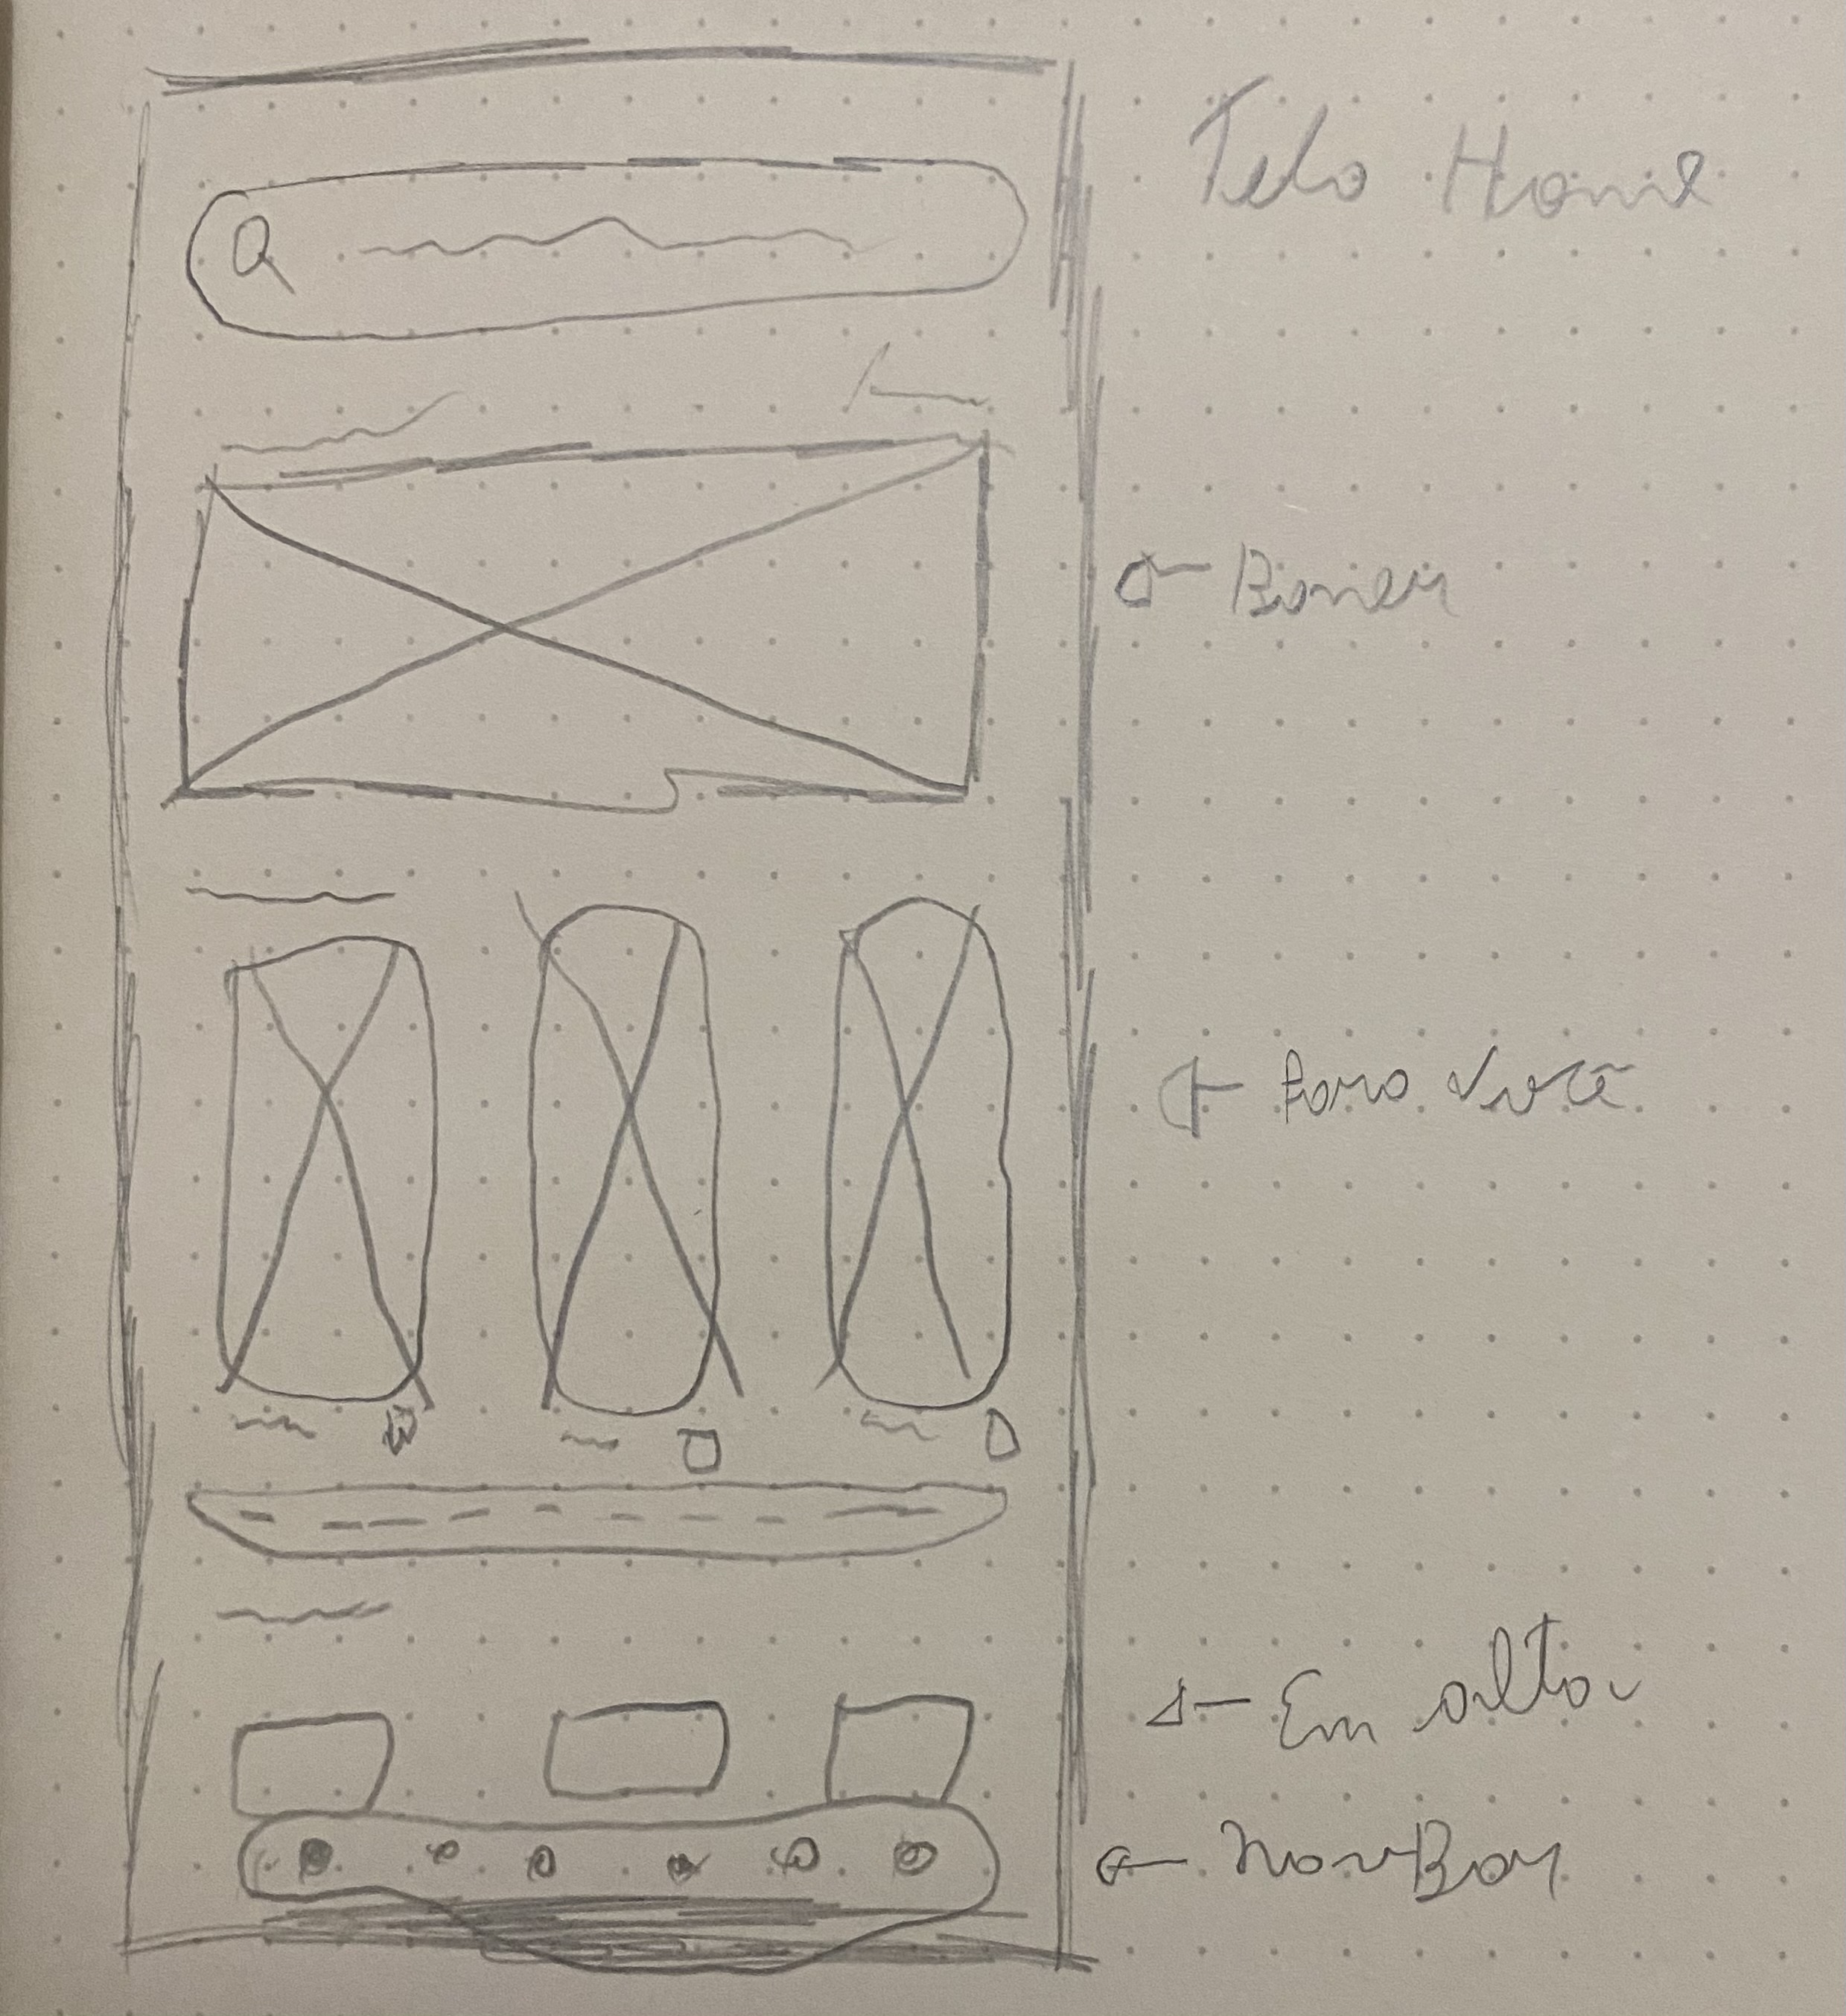 Tela Home
Banner
Para você
Em alta
NavBar